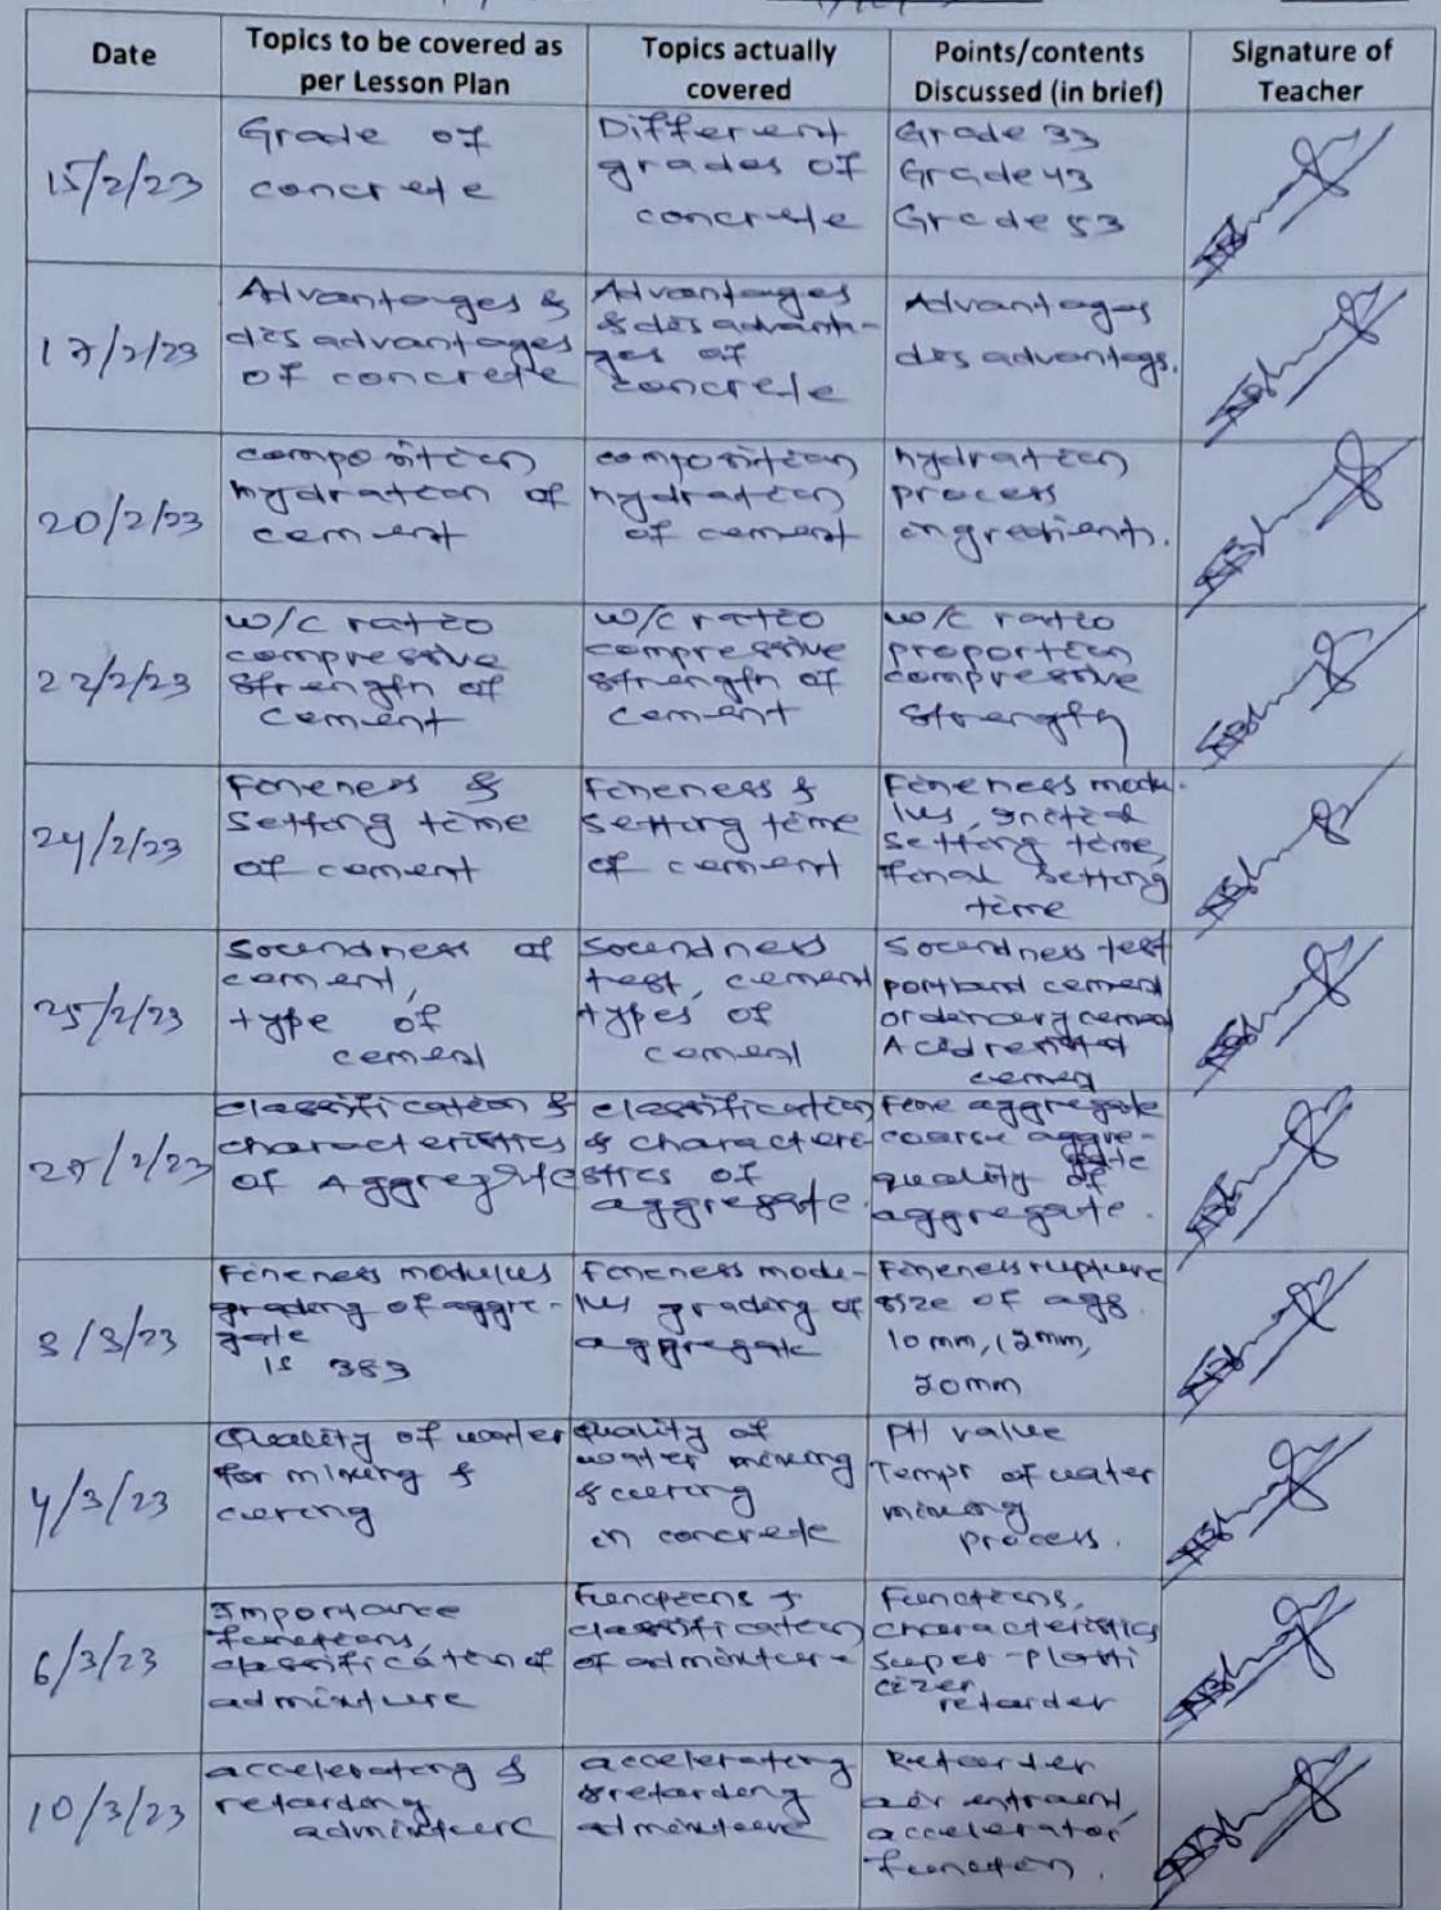 Date
Topics to be covered as
per Lesson Plan
Topics actually
covered
Points/contents
Discussed (in brief)
Signature of
Teacher
15/2/23
Grade of
concrete
Different
grades of
concrete
Grade 33
Grade 43
Grade 53
17/2/23
Advantages &
disadvantages
of concrete
Advantages
& disadvanta-
ges of
concrete
Advantages
disadvantags.
20/2/23
composition
hydration of
cement
composition
hydration
of cement
hydration
process
ingredients.
22/2/23
w/c ratio
compressive
strength of
cement
w/c ratio
compressive
strength of
cement
w/c ratio
proportion
compressive
strength
24/2/23
Fineness &
setting time
of cement
Fineness &
setting time
of cement
Fineness modu-
lus, initial
setting time,
final setting
time
25/2/23
Soundness of
cement,
type of
cement
Soundness
test, cement
types of
cement
Soundness test
portland cement
ordenary cement
Acid resistat
cement
27/2/23
classification &
characteristics
of Aggregate
classification
& characteri-
stics of
aggregate.
Fine aggregate
coarse aggre-
gate
quality of
aggregate.
3/3/23
Fineness modulus
grading of aggre-
gate
is 383
Fineness modu-
lus grading of
aggregate
Fineness rupture
size of agg.
10mm, 12mm,
20mm
4/3/23
Quality of water
for mixing &
curing
quality of
water mixing
& curing
in concrete
PH value
Tempr of water
mixing
process.
6/3/23
Importance
functions,
classification of
admixture
Functions &
classification
of admixture
Functions,
characteristics
super-plasti
cizer
retarder
10/3/23
accelerating &
retarding
admixture
accelerating
& retarding
admixture
Retarder
air entraint,
accelerator
function.